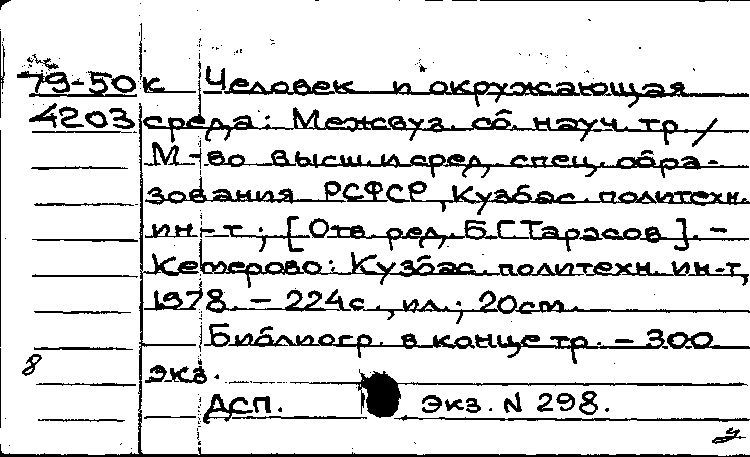 79-50к Человек и окружающая
4203 среда: Межвуз. сб. науч. тр. /
М-во высш. и сред. спец. обра-
зования РСФСР, Кузбас. политехн.
ин-т; [Отв. ред. Б.Г. Тарасов]. –
Кемерово: Кузбас. политехн. ин-т,
1978. – 224с., ил.; 20см.
Библиогр. в конце тр. – 300
8 экз.
ДСП. Экз. N 298.